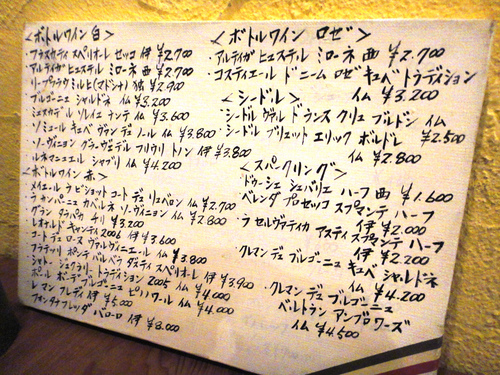 <ボトルワイン 白>
・フラスカティ スペリオーレ セッコ 伊 ¥2.700
・アルティガ ヒュステル ミローネ 西 ¥2.700
・リープフラウミルヒ(マドンナ) 独 ¥2.900
ブルゴーニュ シャルドネ イム ¥3.200
ミュスカデル ソレイユ ナンテ イム ¥3.600
・ソミュール キュベ ヴァン デュノール イム ¥3.800
・ソーヴィニヨン グラーヴェデル フリウリ トリノ 伊 ¥3.800
ルネマンニエル シャブリ イム ¥4.200
<ボトルワイン 赤>
メイエール ラ ピショット コート デュ リュベロン イム ¥2.700
・ラ カンパーニュ カベルネ ソーヴィニヨン イム ¥2.800
・グラン タラパカ チリ ¥3.200
レオナルド キャンティ 2006 伊 ¥3.600
コート デュ ローヌ ヴァルヴィニエール イム ¥3.800
フラテッリ ポンテ バルベラ ダスティ スペリオレ 伊 ¥3.900
シャトー ジュグラリー トラディション 2005 イム ¥4.000
ポール ボーデ ブルゴーニュ ピノノワール イム ¥4.000
レ マン フレディ 伊 ¥5.000
フォンタナフレッダ バローロ 伊 ¥8.000
<ボトルワイン ロゼ>
・アルティガ ヒュステル ミローネ 西 ¥2.700
・コスティエール ド ニーム ロゼ キュベ トラディション
イム ¥3.200
<シードル>
・シードル ヴァル ド ランス クリュ ブルトン イム
¥2.500
・シードル ブリュット エリック ボルドレ
イム ¥2.800
<スパークリング>
・ドゥーシェ シュバリエ ハーフ 西 ¥1.600
・ベレンダ プロセッコ スプマンテ ハーフ
伊 ¥2.000
・ラ セルヴァティカ アスティ スプマンテ ハーフ
伊 ¥2.200
・クレマン デュ ブルゴーニュ キュベ シャルドネ
イム ¥4.200
・クレマン デュ ブルゴーニュ
ベルトラン アンブロワーズ
イム ¥4.500